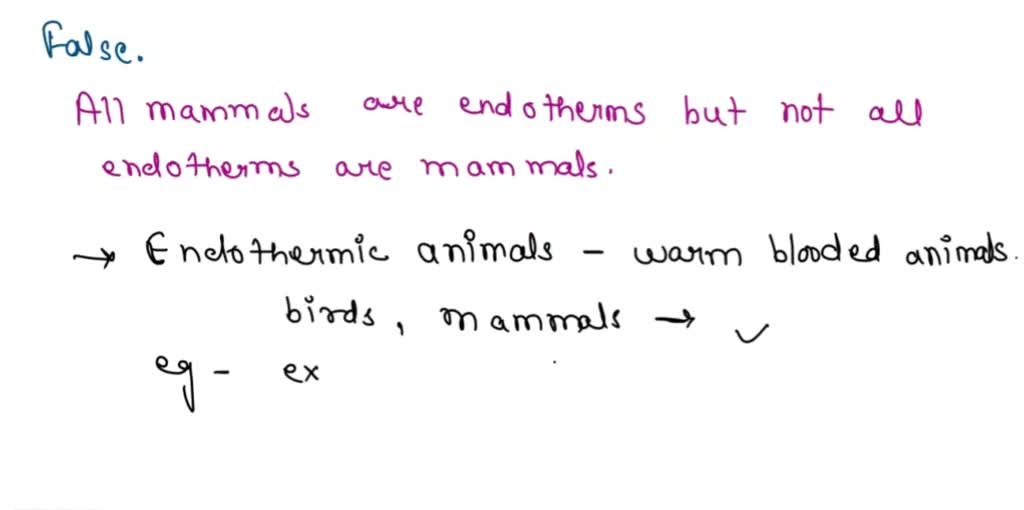 False.
All mammals are endotherms but not all
endotherms are mammals.
→ Endothermic animals - warm blooded animals.
birds, mammals →
eg - ex